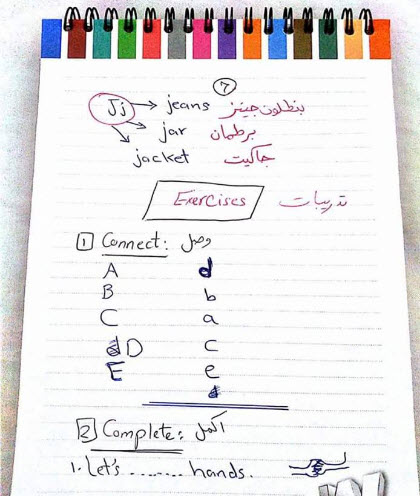 7
Jj → jeans بنطلون جينز
→ jar برطمان
→ jacket جاكيت
Exercises تدريبات
1 Connect: وصل
A d
B b
C a
D c
E e
2 Complete: اكمل
1. Let's ........ hands.